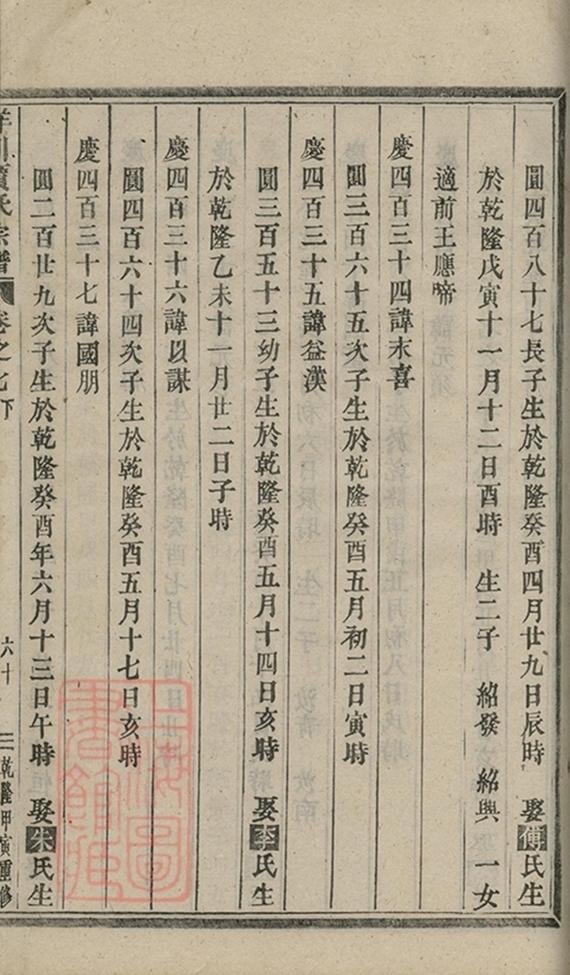 圓四百八十七長子生於乾隆癸酉四月廿九日辰時 娶傅氏生
於乾隆戊寅十一月十二日酉時 生二子 紹發 紹興 一女
適前王應帝
慶四百三十四諱末喜
圓三百六十五次子生於乾隆癸酉五月初二日寅時
慶四百三十五諱益漢
圓三百五十三幼子生於乾隆癸酉五月十四日亥時 娶李氏生
於乾隆乙未十一月廿二日子時
慶四百三十六諱以謀
圓四百六十四次子生於乾隆癸酉五月十七日亥時
慶四百三十七諱國朋
圓二百廿九次子生於乾隆癸酉年六月十三日午時 娶朱氏生
氏宗譜 卷之七下 六十 乾隆甲寅重修